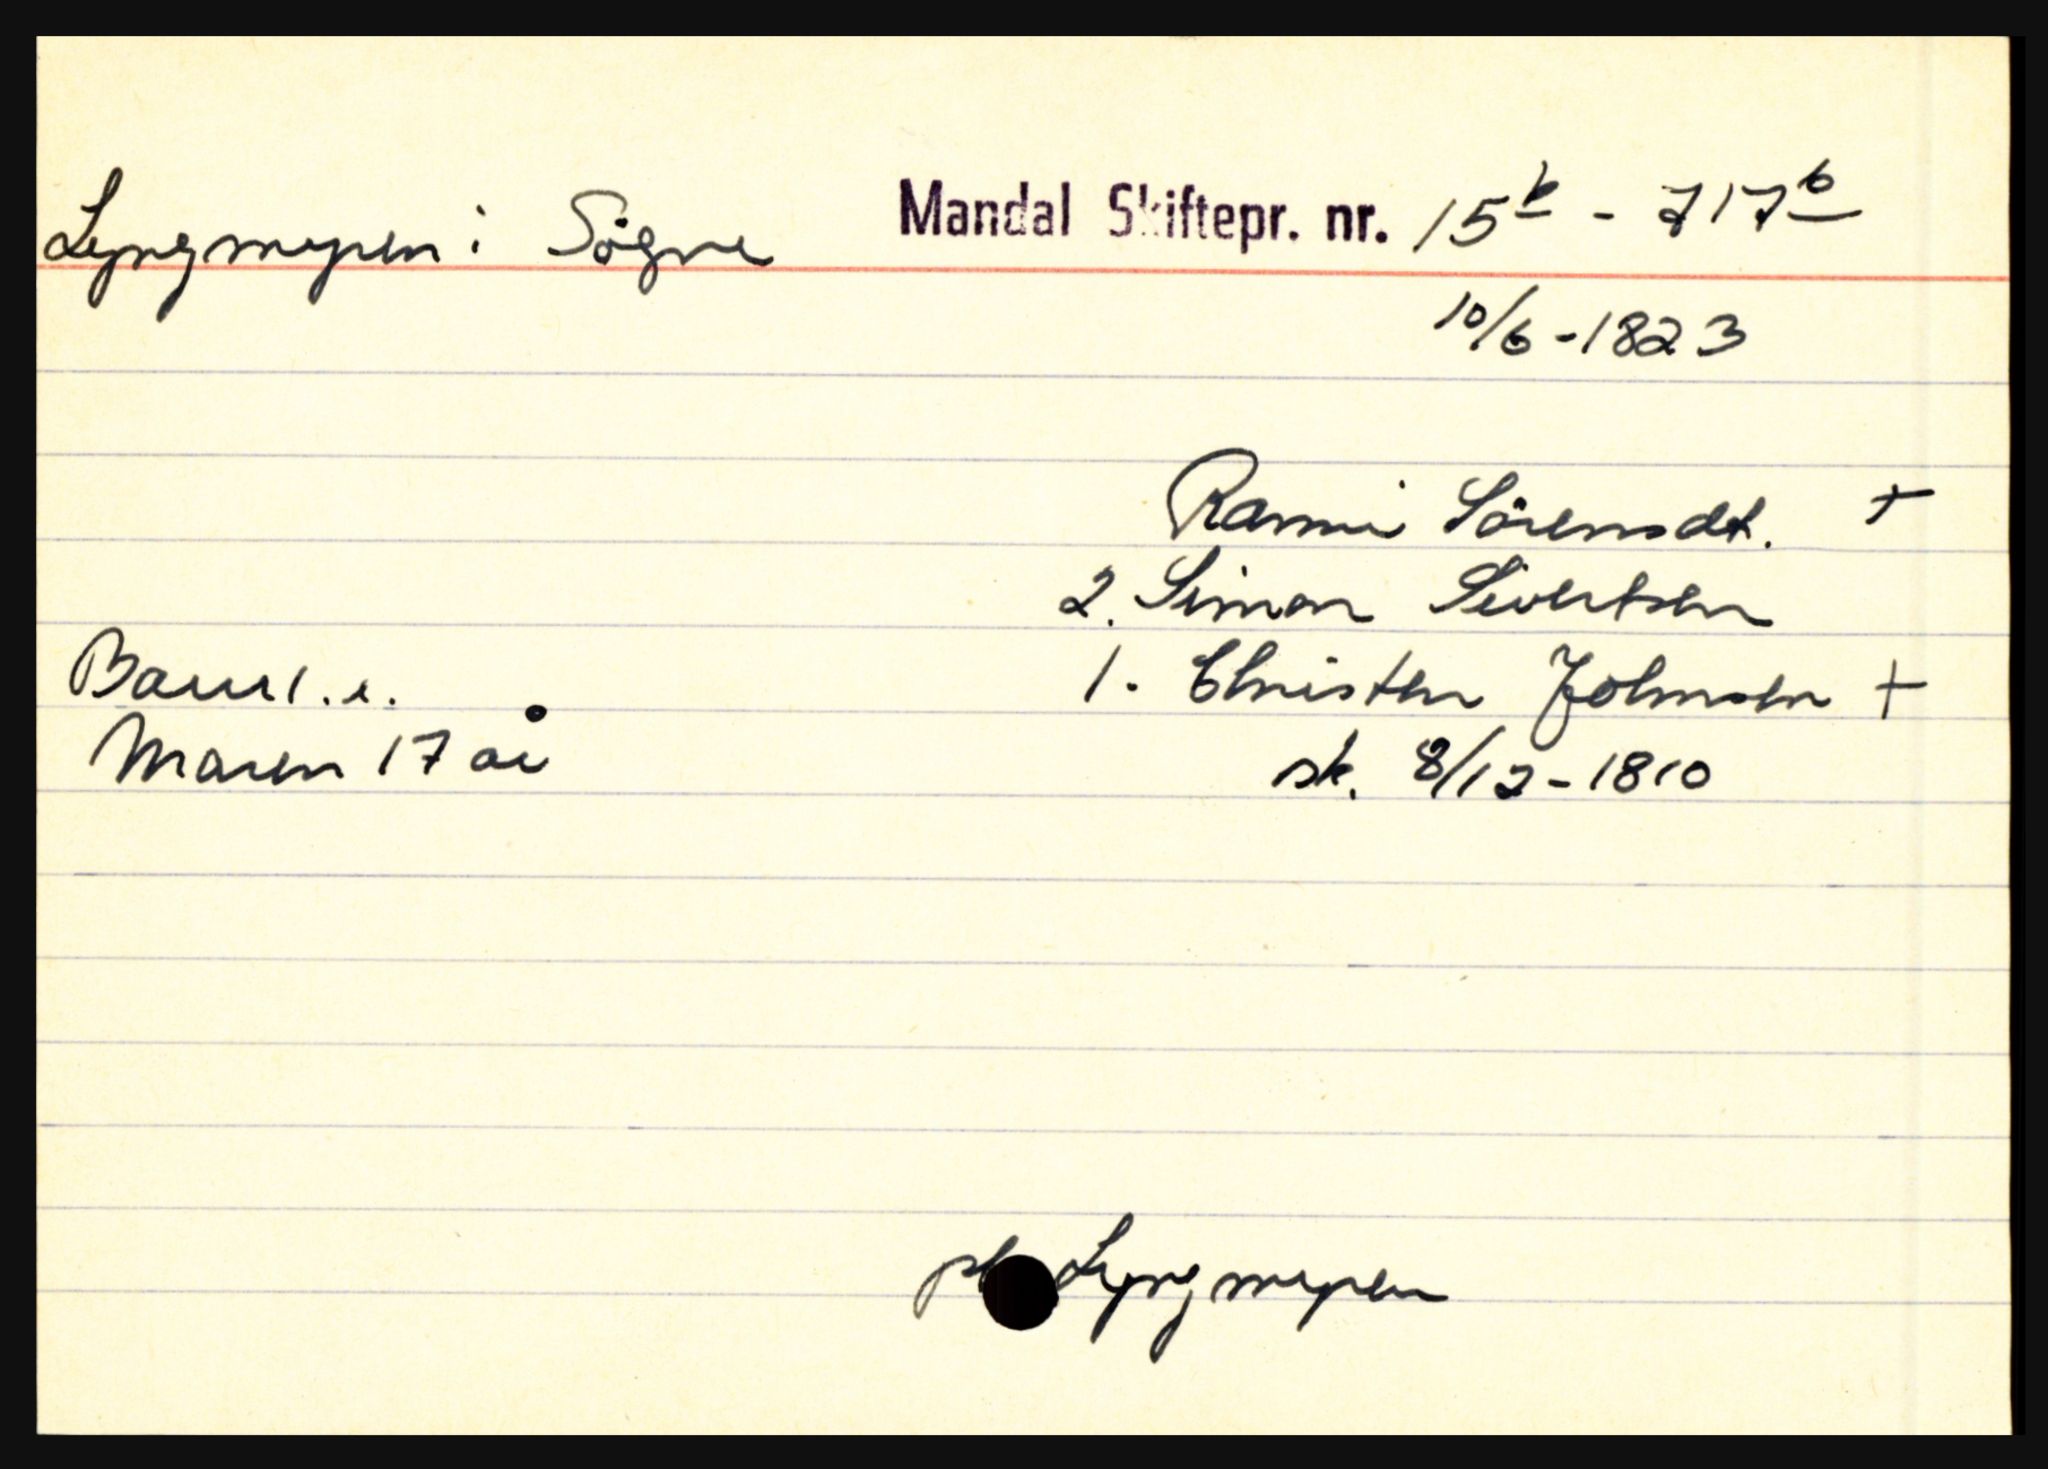 Lyngmyren i Søgne Mandal Skiftepr. nr. 15b - 717b
10/6-1823
Rammi Sörensdt. +
2. Simon Sivertsen
Barn 1. e. 1. Christen Johnsen +
Maren 17 år sk. 8/12-1810
pl Lyngmyren